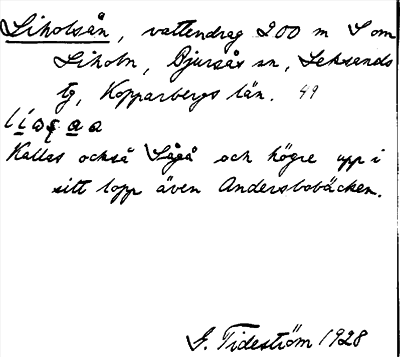 Liholsån, vattendrag 200 m S om
Liholn, Bjursås sn, Leksands
tg, Kopparbergs län. 49
Kallas också Sågå och högre upp i
sitt lopp även Andersbobäcken.
G. Tideström 1928